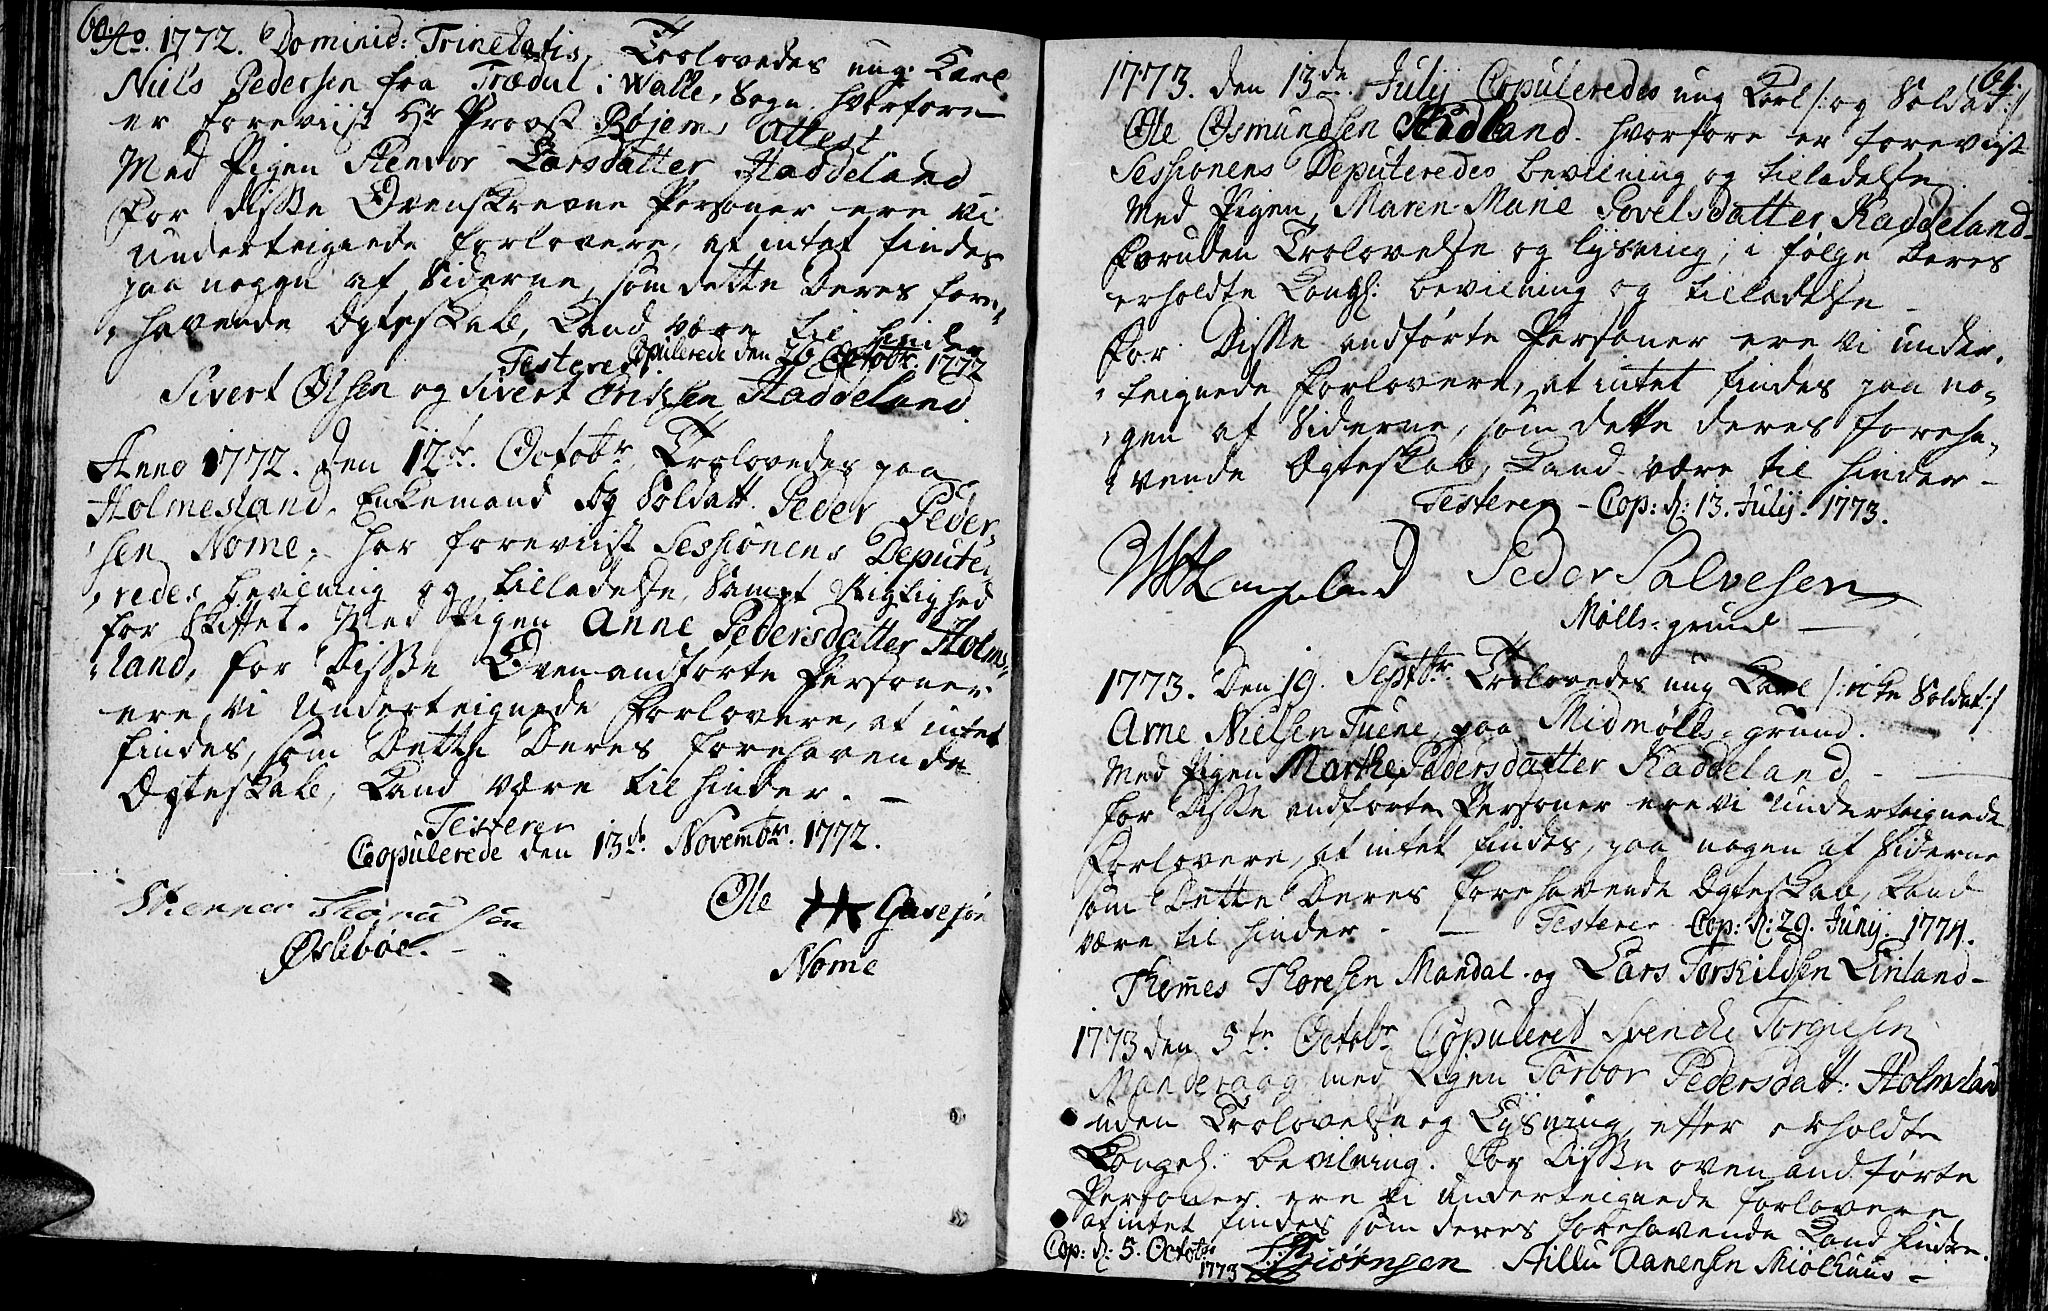 60.
Ao. 1772. 6 Dominic: Trinetatis, Trolovedes ung Karl
Niels Pedersen fra Trædal i Walle Sogn, hvorfore
er foreviist Hr Provst Bojems Attest
Med Pigen Stenvor Larsdatter Haddeland
For disse Ovenskrevne Personer ere vi
underteignede forlovere, at intet findes
paa nogen af Siderne, som dette Deres fore„
„havende Ægteskab, Kand være til hinder
Testerer. Copulerede den 26 Octobr. 1772
Sivert Olsen og Sivert Eriksen Haddeland.
Anno 1772. Den 12te. Octobr. Trolovedes paa
Holmesland, Enkemand og Soldatt. Peder Peder„
„sen Nome, har foreviist Sessionens Depute„
„redes bevilning og tilladelse, Sampt Rigtighed
for Skiftet. Med Pigen Anne Pedersdatter Holms„
„land, for Disse Ovenandførte Personer
ere vi Underteignede Forlovere, at intet
findes, som Dette Deres forehavende
Ægteskab, Kand være til hinder. –
Testerer
Copulerede den 13de. Novembr. 1772.
Ole Gasesøn
Øslebøe. –
Nome
61.
1773. den 13de. Julij Copuleredes ung Karl /: og Soldat :/
Ole Osmundsen Stadland. hvorfore er forevist
Sessionens Deputeredes bevilning og tilladelse
Med Pigen, Maren Marie Povelsdatter Kaddeland –
Foruden Trolovelse og lysning, i følge Deres
erholdte Kongl: bevilning og tilladelse –
For Disse andførte Personer ere vi under„
„teignede Forlovere, at intet findes paa no„
„gen af Siderne, som dette deres foreha„
„vende Ægteskab, Kand være til hinder –
Testerer – Cop: d: 13. Julij. 1773.
Peder Salvesen
Mølls-grund –
1773. Den 19. Septbr. Trolovedes ung Karl /: icke Soldat :/
Arne Nielsen Tuene, paa Midmølls-grund.
Med Pigen Marthe Pedersdatter Kaddeland –
for Disse andførte Personer ere vi Underteignede
Forlovere, at intet findes, paa nogen af Siderne
som Dette Deres forehavende Ægteskab, Kand
være til hinder. – Testerer Cop: d: 29. Junij. 1774.
Thomes Thoresen Mandal. og Lars Torkildsen Einland –
1773 den 5te Octobr Copuleret Svencke Torgiesen
Manderaag med Pigen Torbor Pedersdatt: Holmsland
uden Trolovelse og Lysning, efter erholdte
Kongel. bevilning. For Disse ovenandførte
Personer ere vi underteignede forlovere
at intet findes som deres forehavende Kand hindre.
Cop: d: 5. Octobr
1773
Biørnsen Aillu Aanensen Miølhuus –